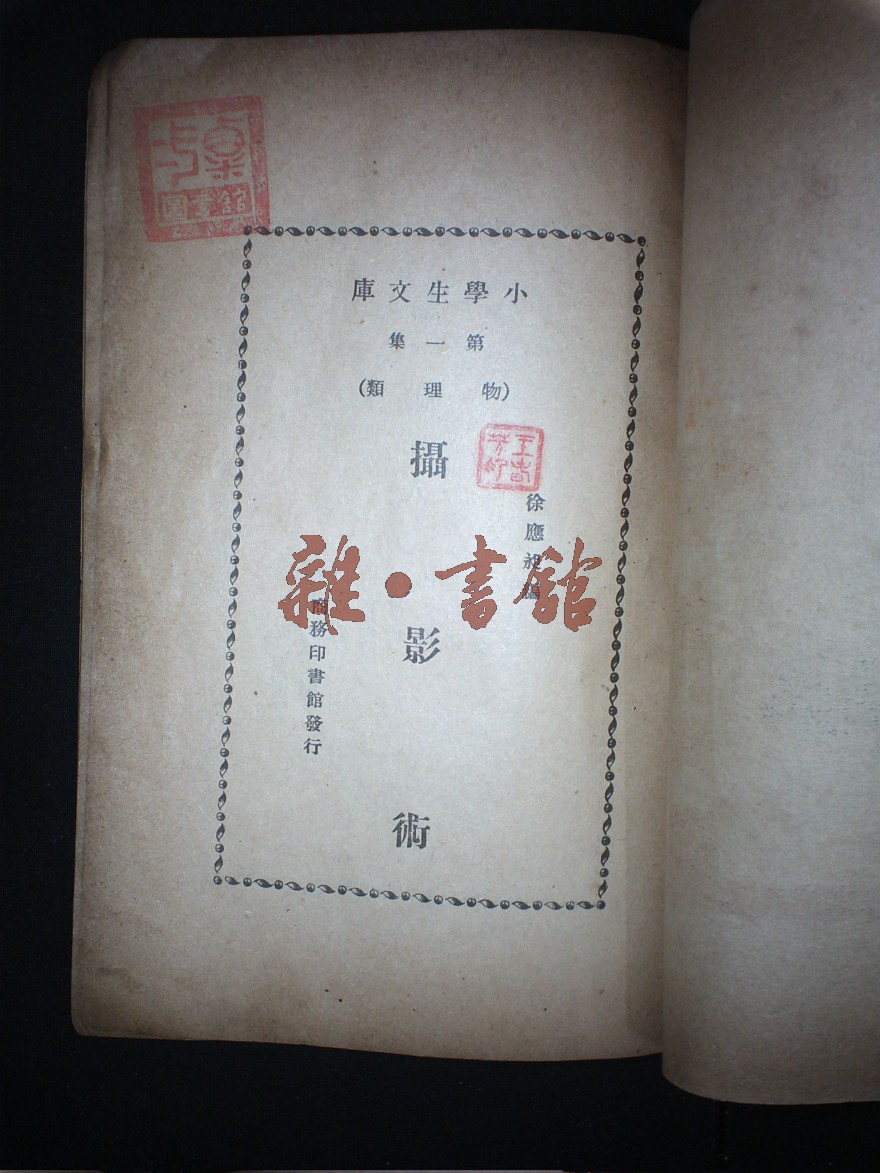 小學生文庫
第一集
(物理類)
徐應昶編
攝影術
商務印書館發行
雜·書館
圖書館